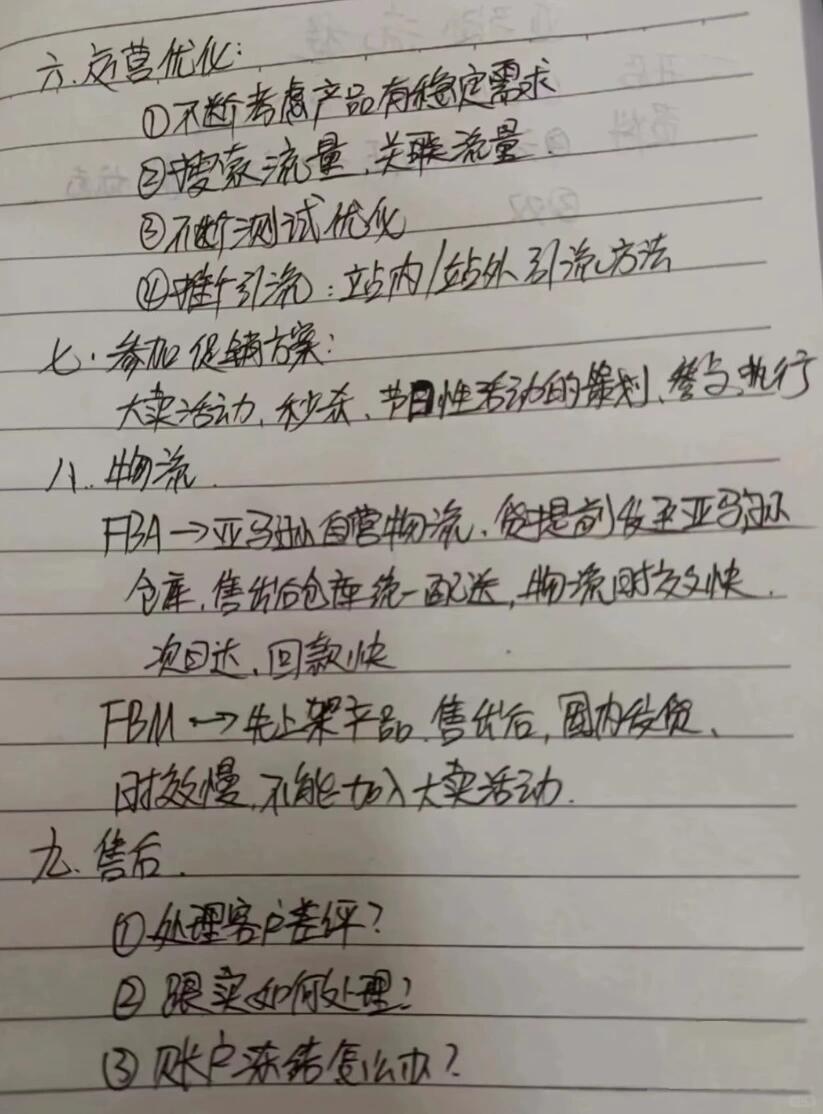 六.运营优化:
①不断考虑产品有稳定需求
②搜索流量、关联流量.
③不断测试优化
④推广引流:站内/站外引流方法
七.参加促销方案:
大卖活动、秒杀、节日性活动的策划、参与、执行
八.物流.
FBA→亚马逊自营物流、货提前发至亚马逊
仓库、售出后仓库统一配送,物流时效快.
次日达、回款快
FBM→先上架产品.售出后,国内发货、
时效慢.不能加入大卖活动.
九.售后.
①处理客户差评?
②跟卖如何处理?
③账户冻结怎么办?